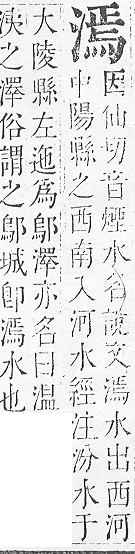 漹因仙切音煙水名說文漹水出西河
中陽縣之西南入河水經注汾水于
大陵縣左迤爲鄔澤亦名曰漚
洟之澤俗謂之鄔城卽漹水也